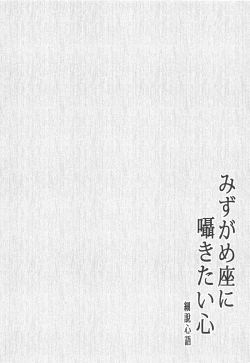 みずがめ座に
囁きたい心
細說心語